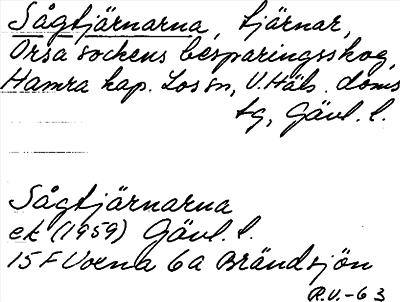 Sågtjärnarna, tjärnar,
Orsa sockens besparingsskog,
Hamra kap. Los sn, V. Häls. doms
tg, Gävl. l.
Sågtjärnarna
ek (1959) Gävl. l.
15 F Voxna 6a Brändsjön
R.U.-63